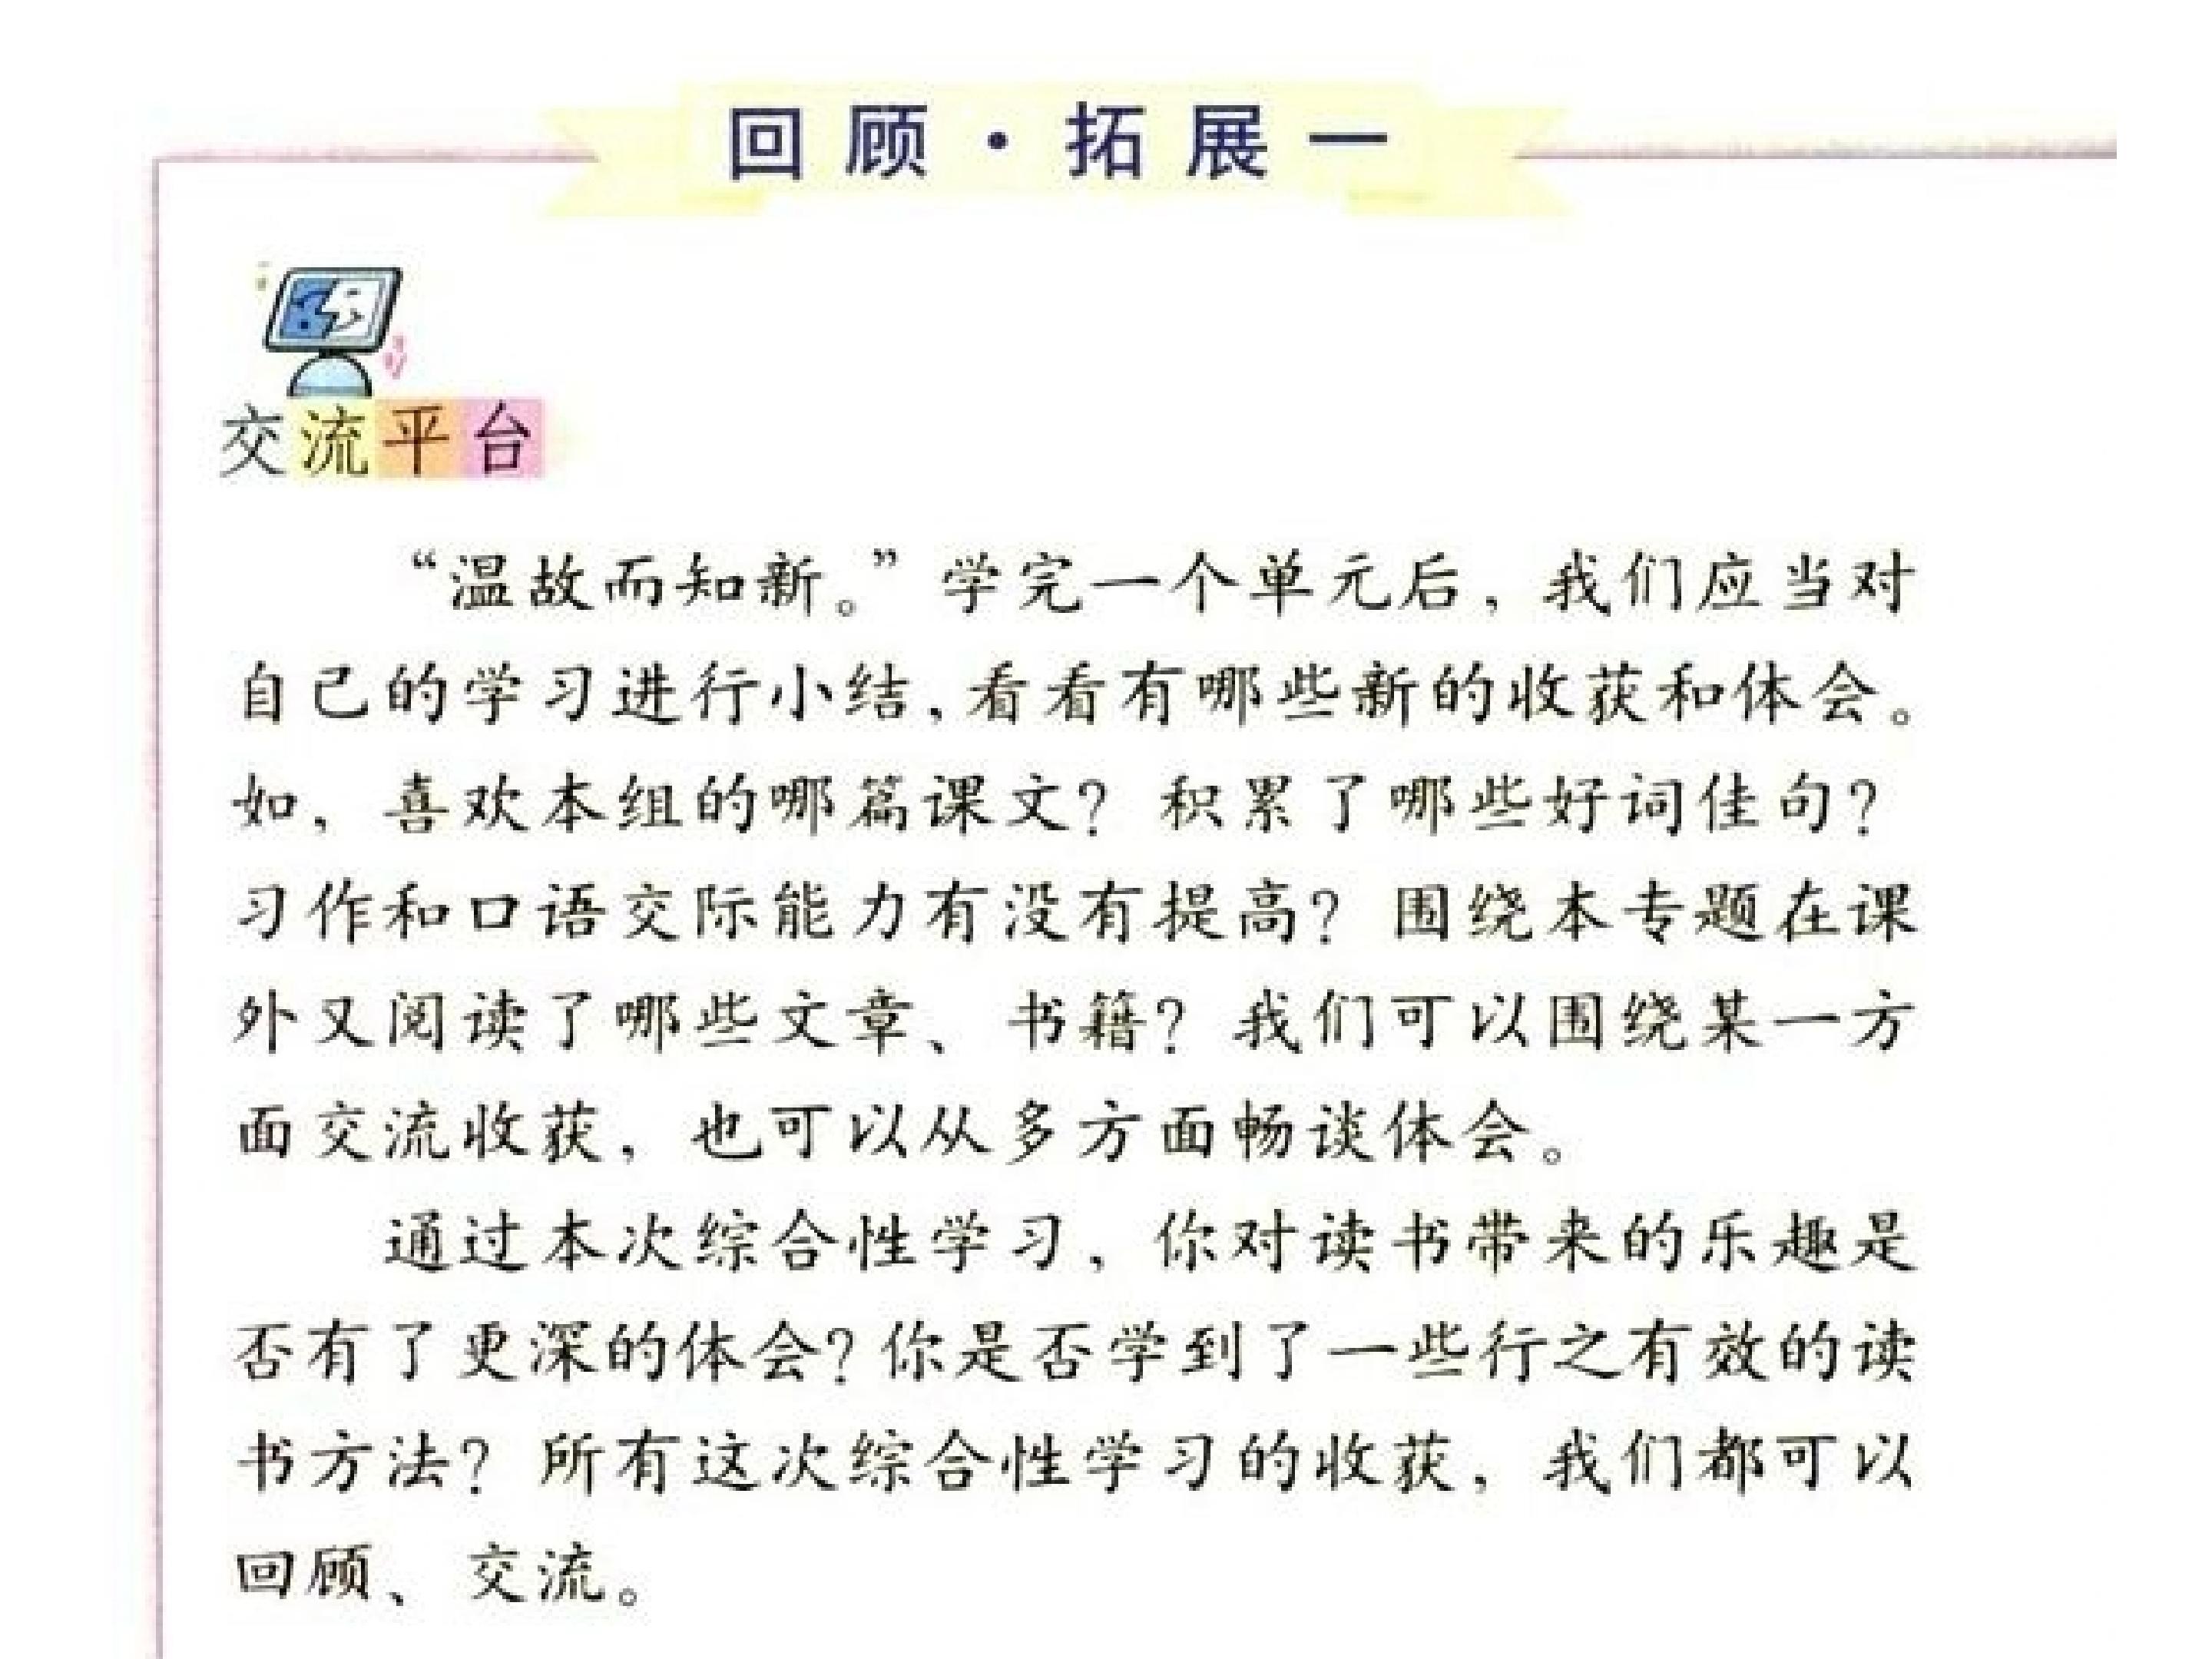 回顾·拓展一
交流平台
“温故而知新。”学完一个单元后，我们应当对
自己的学习进行小结，看看有哪些新的收获和体会。
如，喜欢本组的哪篇课文？积累了哪些好词佳句？
习作和口语交际能力有没有提高？围绕本专题在课
外又阅读了哪些文章、书籍？我们可以围绕某一方
面交流收获，也可以从多方面畅谈体会。
通过本次综合性学习，你对读书带来的乐趣是
否有了更深的体会？你是否学到了一些行之有效的读
书方法？所有这次综合性学习的收获，我们都可以
回顾、交流。